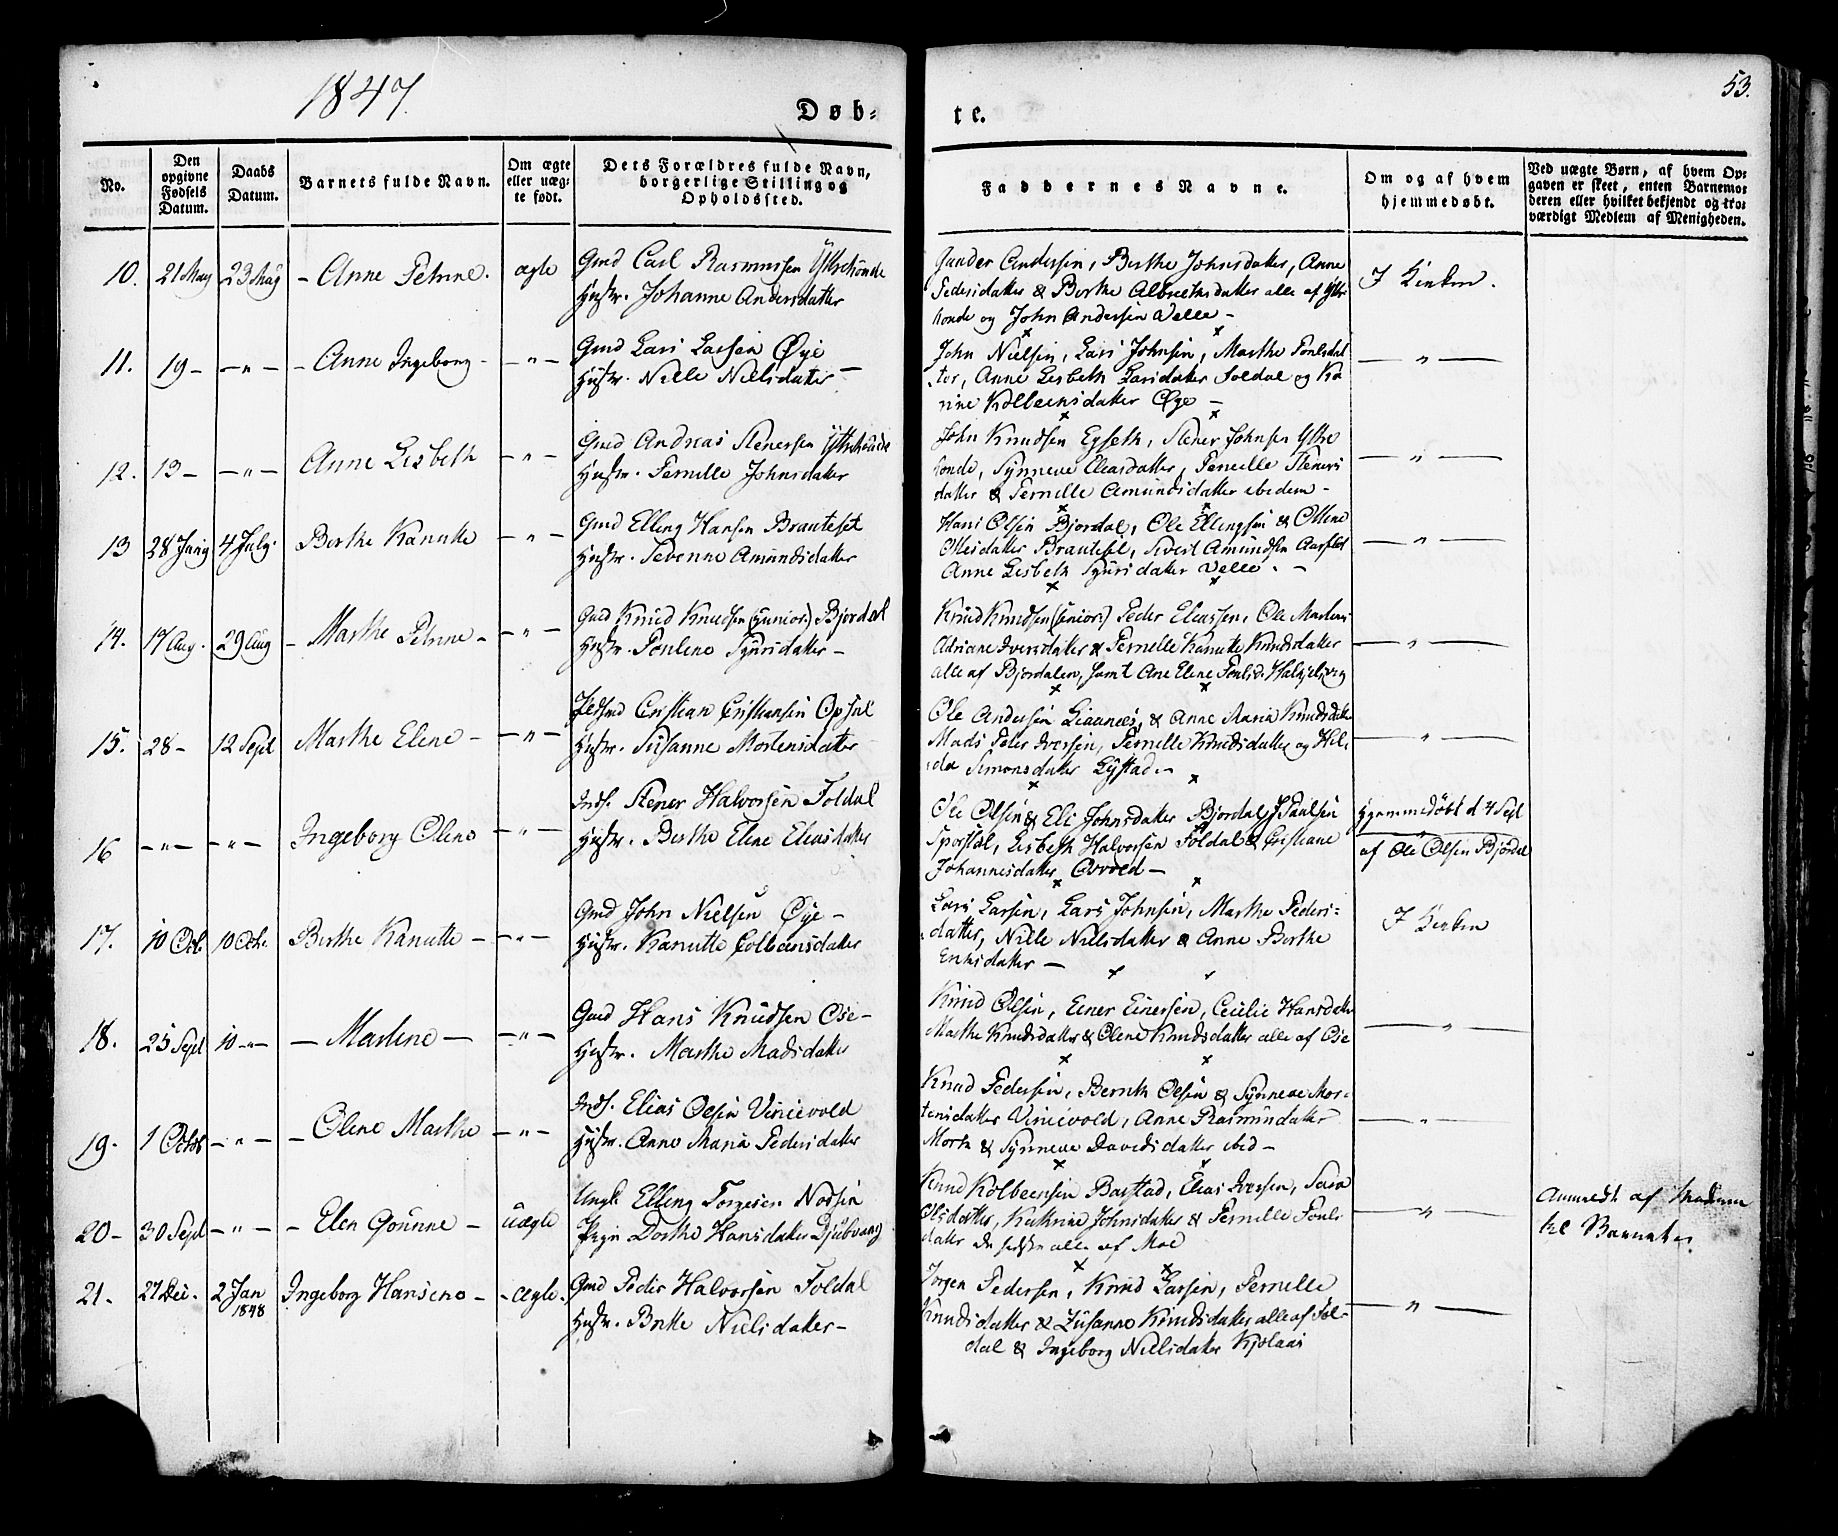 1847.
Døb=
te.
53.
No.
Den opgivne Fødsels Datum.
Daabs Datum.
Barnets fulde Navn.
Om ægte eller uæg= te født.
Dets Forældres fulde Navn, borgerlige Stilling og Opholdssted.
Faddernes Navne.
Om og af hvem hjemmedøbt.
Ved uægte Børn, af hvem Op= gaven er skeet, enten Barnemo= deren eller hvilket bekjendt og tro= værdigt Medlem af Menigheden.
10. 21 May 23 May - Anne Petrine. ægte
Gmd Carl Rasmussen Ytreskonde
Hustr. Johanne Andersdatter
Gunder Andersen, Berthe Johnsdatter, Anne
Pedersdatter & Berthe Albrethsdatter alle af Ytre
konde og John Andersen Velle -
I Kirken.
11. 19 - - " - - Anne Ingeborg - - " -
Gmd Lars Larsen Øye
Hustr. Nille Nielsdatter -
John Nielsen, Lars Johnsen, Marthe Poulsdat
ter, Anne Lisbeth Larsdatter Foldal og Ka
rine Kolbeensdatter Øye -
- " -
12. 13 - - " - Anne Lisbeth - " -
Gmd Andreas Stenersen Ytreskonde
Hustr. Pernille Johnsdatter
John Knudsen Egseth, Stener Johnsen Ytre
konde, Synneve Eliasdatter, Pernille Steners
datter & Pernille Amundsdatter ibidem -
- " -
13 28 Juny 4 July. Berthe Kanutte - " -
Gmd Elling Hansen Brauteset
Hustr. Sevenne Amundsdatter
Hans Olsen Bjordal, Ole Ellingsen & Oline
Olesdatter Brauteset, Sivert Amundsen Aarset
Anne Lisbeth Syversdatter Velle. -
- " -
14. 17 Aug. 29 Aug - Marthe Petrine - - " -
Gmd Knud Knudsen (junior.) Bjordal
Hustr. Pouline Syversdatter -
Knud Knudsen (senior.) Peder Eliassen, Ole Martens
Adriane Iversdatter & Pernille Kanutte Knudsdatter
alle af Bjordalen, samt Ane Elene Poulsd. Halkjelsvig
- " -
15. 28 - 12 Sept Marthe Elene - - " -
Cristian Cristiansen Opsal
Hustr. Susanne Mortensdatter
Ole Andersen Liaanæs, & Anne Maria Knudsdatter
Mads Peter Iversen, Pernille Knudsdatter og Hil=
da Simonsdatter Lystad. -
- " -
16 - " - - " - Ingeborg Oline - " -
Inds. Stener Halvorsen Foldal
Hustr. Berthe Eline Eliasdatter
Ole Olsen & Eli Johnsdatter Bjordal, J Paulsen
Sporstøl, Lisbeth Halvorsen Foldal & Cristiane
Johannesdatter Orvold -
Hjemmedøbt d 4 Sept
af Ole Olsen Bjordal
17. 10 Oct. 10 Octr. Berthe Kanutte - - " -
Gmd John Nielsen Øye -
Hustr. Kanutte Colbensdatter
Lars Larsen, Lars Johnsen, Marthe Peders=
datter, Nille Nielsdatter & Anne Berthe
Eriksdatter -
I Kirken
18. 25 Sept 10 - " - - Martine - - " -
Gmd Hans Knudsen Ose -
Hustr. Marthe Madsdatter
Knud Olsen, Einer Einersen, Cecilie Hansdatter
Marthe Knudsdatter & Olene Knudsdatter alle af Ose
- " -
19. 1 Octbr - " - - Oline Marthe - " -
Inds. Elias Olsen Vinievold
Hustr. Anne Maria Pedersdatter
Knud Pedersen, Bernth Olsen & Synneve Mor=
tensdatter Vinievold, Anne Rasmusdatter
Mork & Synneve Davidsdatter ibid -
- " -
20 - 30 Sept - " - - Elen Gounne - uægte
Ungk Elling Torgesen
Pige Dorthe Hansdatter Djubvang
Knud Kolbeensen Barstad, Elias Iversen, Sara
Olsdatter, Kathrine Johnsdatter & Pernille Pouls
datter de sidste alle af Moe
- " -
Anmeldt af Moderen
til Barnet.
21. 27 Dec. 2 Jan 1848 Ingeborg Hansine - - ægte.
Gmd Peder Halvorsen Foldal
Hustr. Berthe Nielsdatter -
Jørgen Pedersen, Knud Larsen, Pernille
Knudsdatter & Zusanne Knudsdatter alle af Fol=
dal & Ingeborg Nielsdatter Kjolaas
- " -